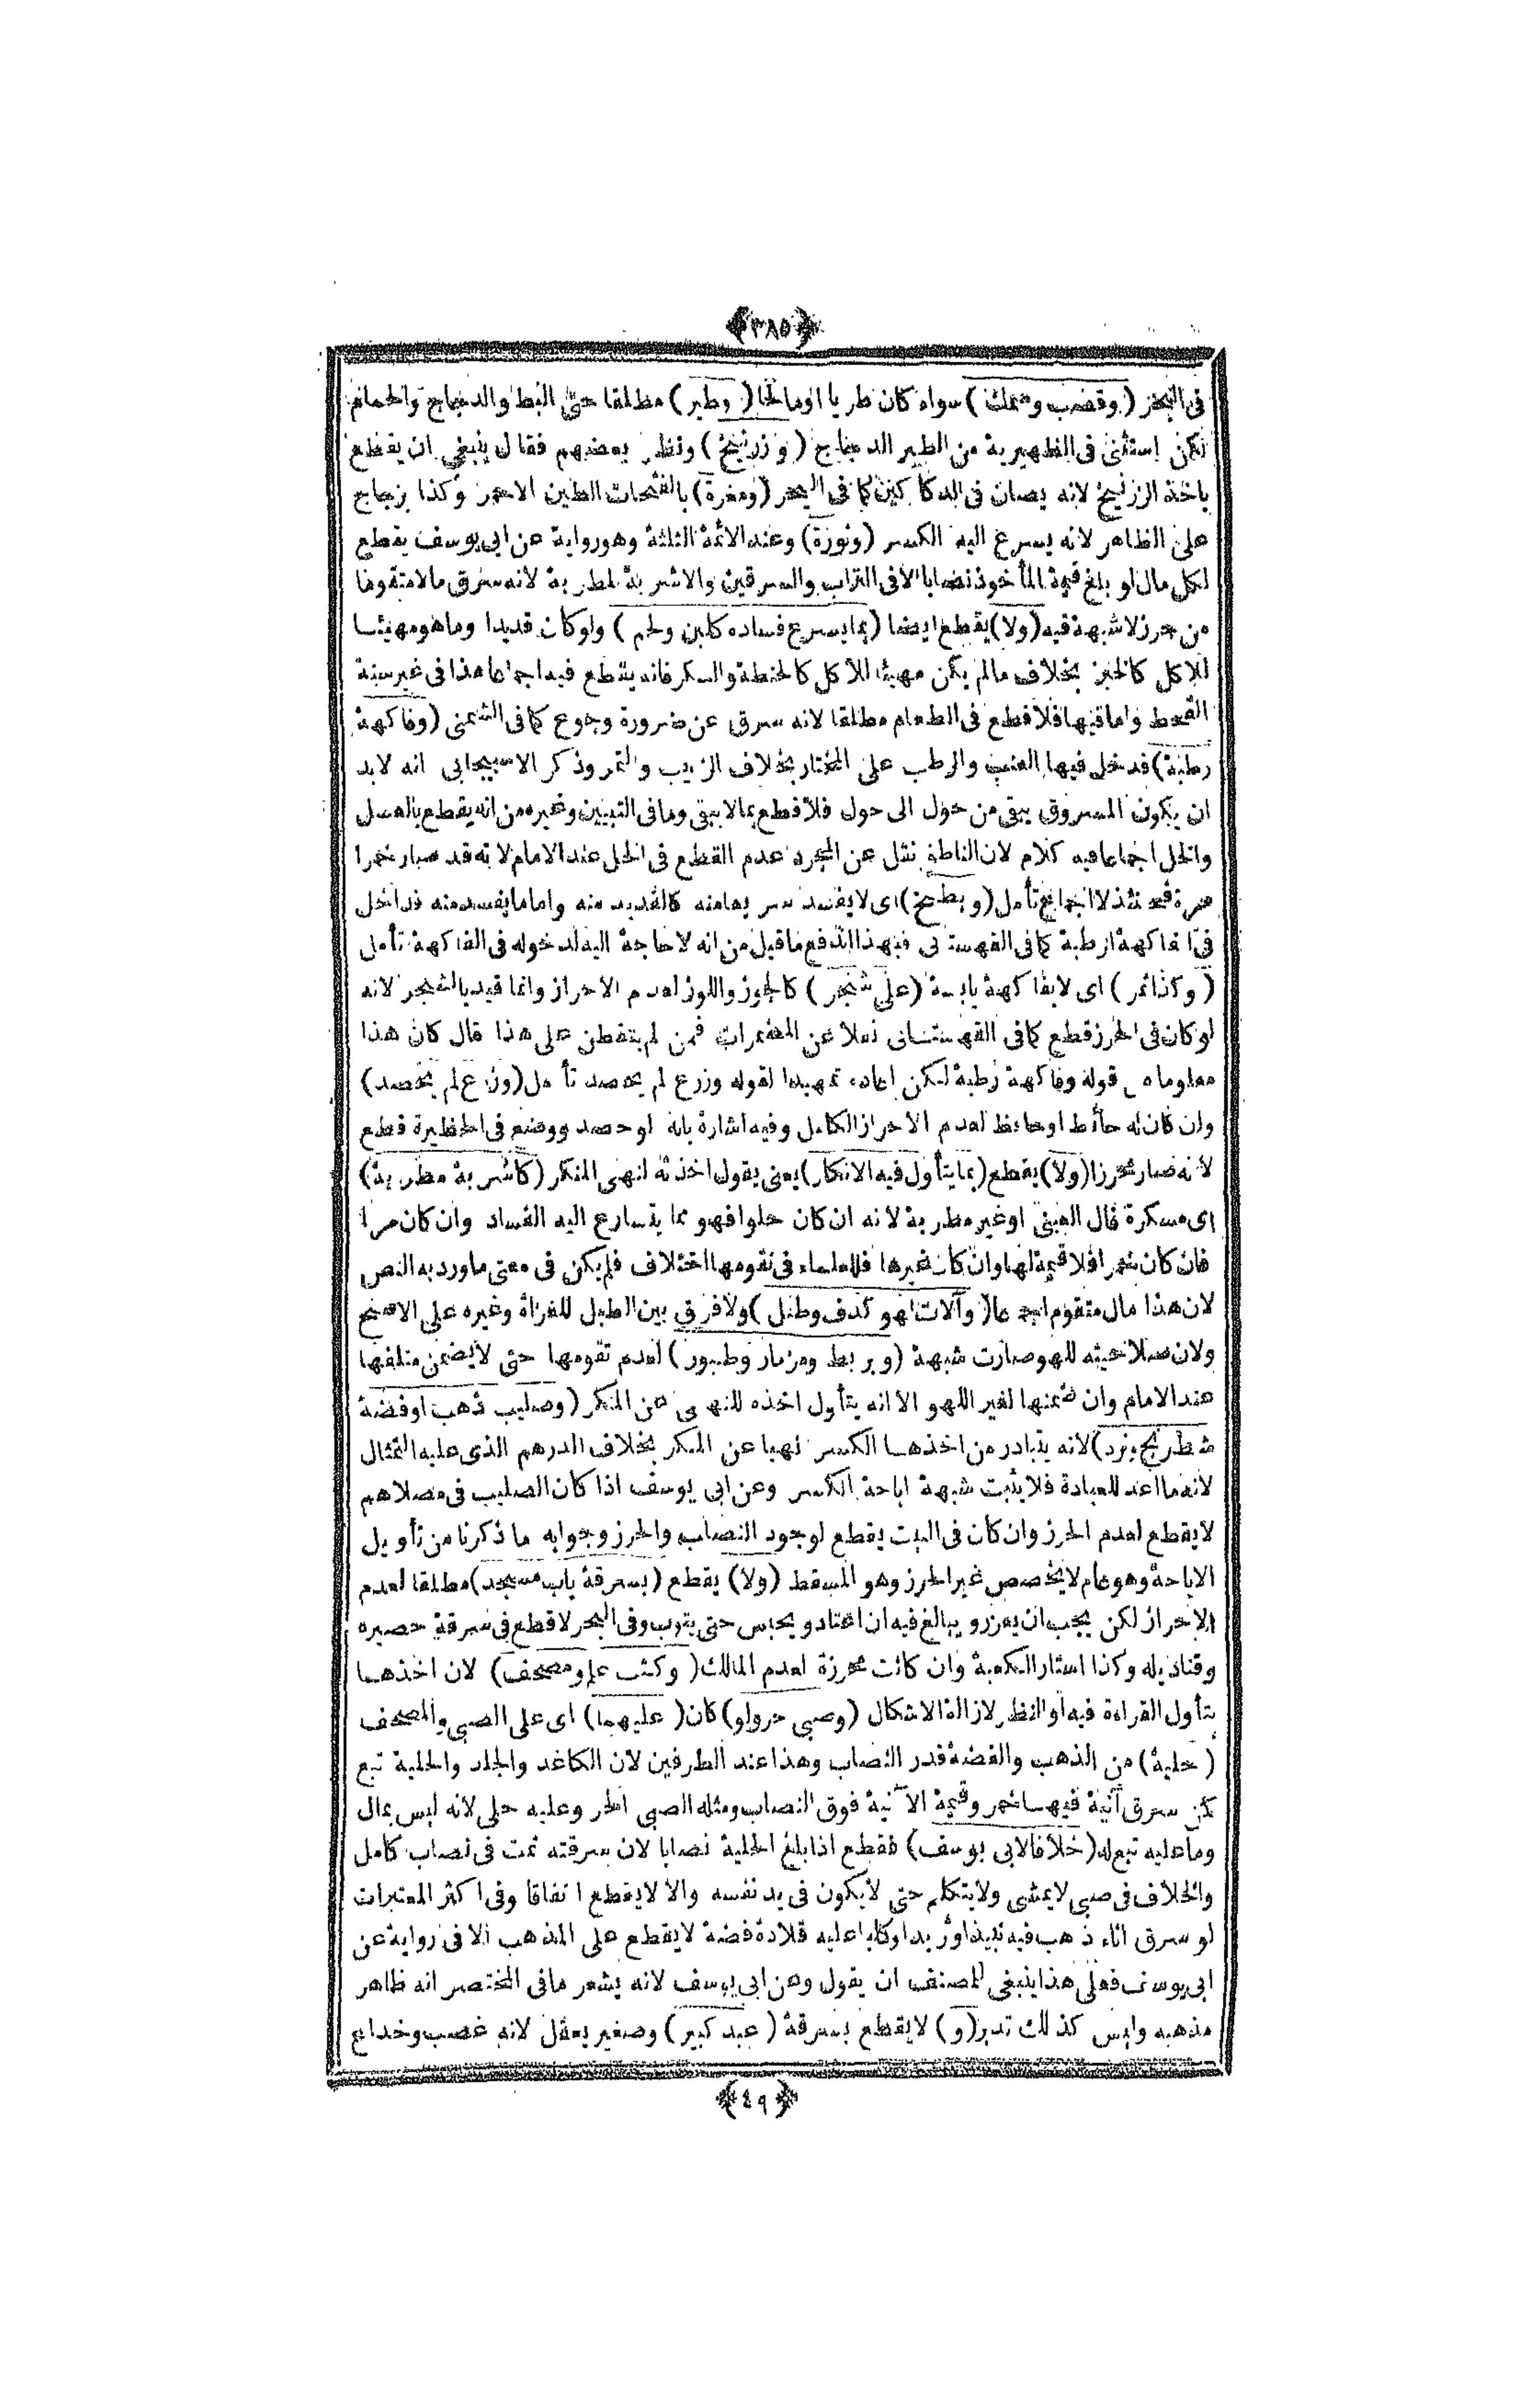 ﴿٣٨٥﴾
فى البحر (وقصب وسمك) سواء كان طريا او مالحا (وطير) مطلقا حتى البط والدجاج والحمام
لكن استثنى فى الظهيرية من الطير الدجاج (وزرنيخ) ونظر بعضهم فقال ينبغى ان يقطع
باخذ الزرنيخ لانه يصان فى الدكاكين كما فى البحر (ومغرة) بالفتحات الطين الاحمر وكذا زجاج
على الظاهر لانه يسرع اليه الكسر (ونورة) وعند الائمة الثلثة وهو رواية عن ابى يوسف يقطع
لكل مال لو بلغ قيمة المأخوذ نصابا الا فى التراب والسرقين والاشربة المطربة لانه سرق مالا متقوما
من حرز لا شبهة فيه (ولا) يقطع ايضا (بما يسرع فساده كلبن ولحم) ولو كان قديدا وما هو مهيئا
للاكل كالخبز بخلاف مالم يكن مهيئا للاكل كالحنطة والسكر فانه يقطع فيه اجماعا هذا فى غير سنة
القحط واما فيها فلا قطع فى الطعام مطلقا لانه سرق عن ضرورة وجوع كما فى الشمنى (وفاكهة
رطبة) فدخل فيها العنب والرطب على المختار بخلاف الزبيب والتمر وذكر الاسبيجابى انه لابد
ان يكون المسروق يبقى من حول الى حول فلا قطع بما لا يبقى وما فى التبيين وغيره من انه يقطع بالعسل
والخل اجماعا فيه كلام لان الناطفى نقل عن المجرد عدم القطع فى الخل عند الامام لانه قد صار خمرا
مرة فحينئذ لا اجماع تأمل (وبطيخ) اى لا يفسد سريعا منه كالقديد منه واما ما يفسد منه فداخل
فى الفاكهة الرطبة كما فى القهستانى فبهذا اندفع ما قيل من انه لا حاجة اليه لدخوله فى الفاكهة تأمل
(وكذا ثمر) اى لا بفاكهة يابسة (على شجر) كالجوز واللوز لعدم الاحراز وانما قيد بالشجر لانه
لو كان فى الحرز قطع كما فى القهستانى نقلا عن المضمرات فمن لم يتفطن على هذا قال كان هذا
معلوما من قوله وفاكهة رطبة لكن اعاده تمهيدا لقوله وزرع لم يحصد تأمل (وزرع لم يحصد)
وان كان له حائط او حافظ لعدم الاحراز الكامل وفيه اشارة بانه لو حصد ووضع فى الحظيرة قطع
لانه صار محرزا (ولا) يقطع (بما يتأول فيه الانكار) يعنى يقول اخذته لنهى المنكر (كاشربة مطربة)
اى مسكرة قال العينى او غير مطربة لانه ان كان حلوا فهو مما يتسارع اليه الفساد وان كان مرا
فان كان خمرا فلا قيمة لها وان كان غيرها فللعلماء فى تقومها اختلاف فلم يكن فى معنى ماورد به النص
لان هذا مال متقوم اجماعا (وآلات لهو كدف وطبل) ولا فرق بين الطبل للغزاة وغيره على الاصح
ولان صلاحيته للهو صارت شبهة (وبربط ومزمار وطنبور) لعدم تقومها حتى لا يضمن متلفها
عند الامام وان ضمنها لغير اللهو الا انه يتأول اخذه للنهى عن المنكر (وصليب ذهب او فضة
وشطرنج ونرد) لانه يتبادر من اخذها الكسر نهيا عن المنكر بخلاف الدرهم الذى عليه التمثال
لانه ما اعد للعبادة فلا يثبت شبهة اباحة الكسر وعن ابى يوسف اذا كان الصليب فى مصلاهم
لا يقطع لعدم الحرز وان كان فى البيت يقطع لوجود النصاب والحرز وجوابه ما ذكرنا من تأويل
الاباحة وهو عام لا يخصص غير الحرز وهو المسقط (ولا) يقطع (بسرقة باب مسجد) مطلقا لعدم
الاحراز لكن يجب ان يعزر ويبالغ فيه ان اعتاد ويحبس حتى يتوب وفى البحر لا قطع فى سرقة حصيره
وقناديله وكذا استار الكعبة وان كانت محرزة لعدم المالك (وكتب علم ومصحف) لان اخذها
يتأول القراءة فيه او النظر لازالة الاشكال (وصبى حر ولو) كان (عليهما) اى على الصبى والمصحف
(حلية) من الذهب والفضة قدر النصاب وهذا عند الطرفين لان الكاغد والجلد والحلية تبع
كمن سرق آنية فيها خمر وقيمة الآنية فوق النصاب ومثله الصبى الحر وعليه حلى لانه ليس بمال
وما عليه تبع له (خلافا لابى يوسف) فقطع اذا بلغ الحلية نصابا لان سرقته تمت فى نصاب كامل
والخلاف فى صبى لا يمشى ولا يتكلم حتى لا يكون فى يد نفسه والا لا يقطع اتفاقا وفى اكثر المعتبرات
لو سرق اناء ذهب فيه نبيذ او ثريد او كلبا عليه قلادة فضة لا يقطع على المذهب الا فى رواية عن
ابى يوسف فعلى هذا ينبغى للمصنف ان يقول وعن ابى يوسف لانه يشعر مافى المختصر انه ظاهر
مذهبه وليس كذلك تدبر (و) لا يقطع بسرقة (عبد كبير) وصغير يعقل لانه غصب وخداع
﴿٤٩﴾